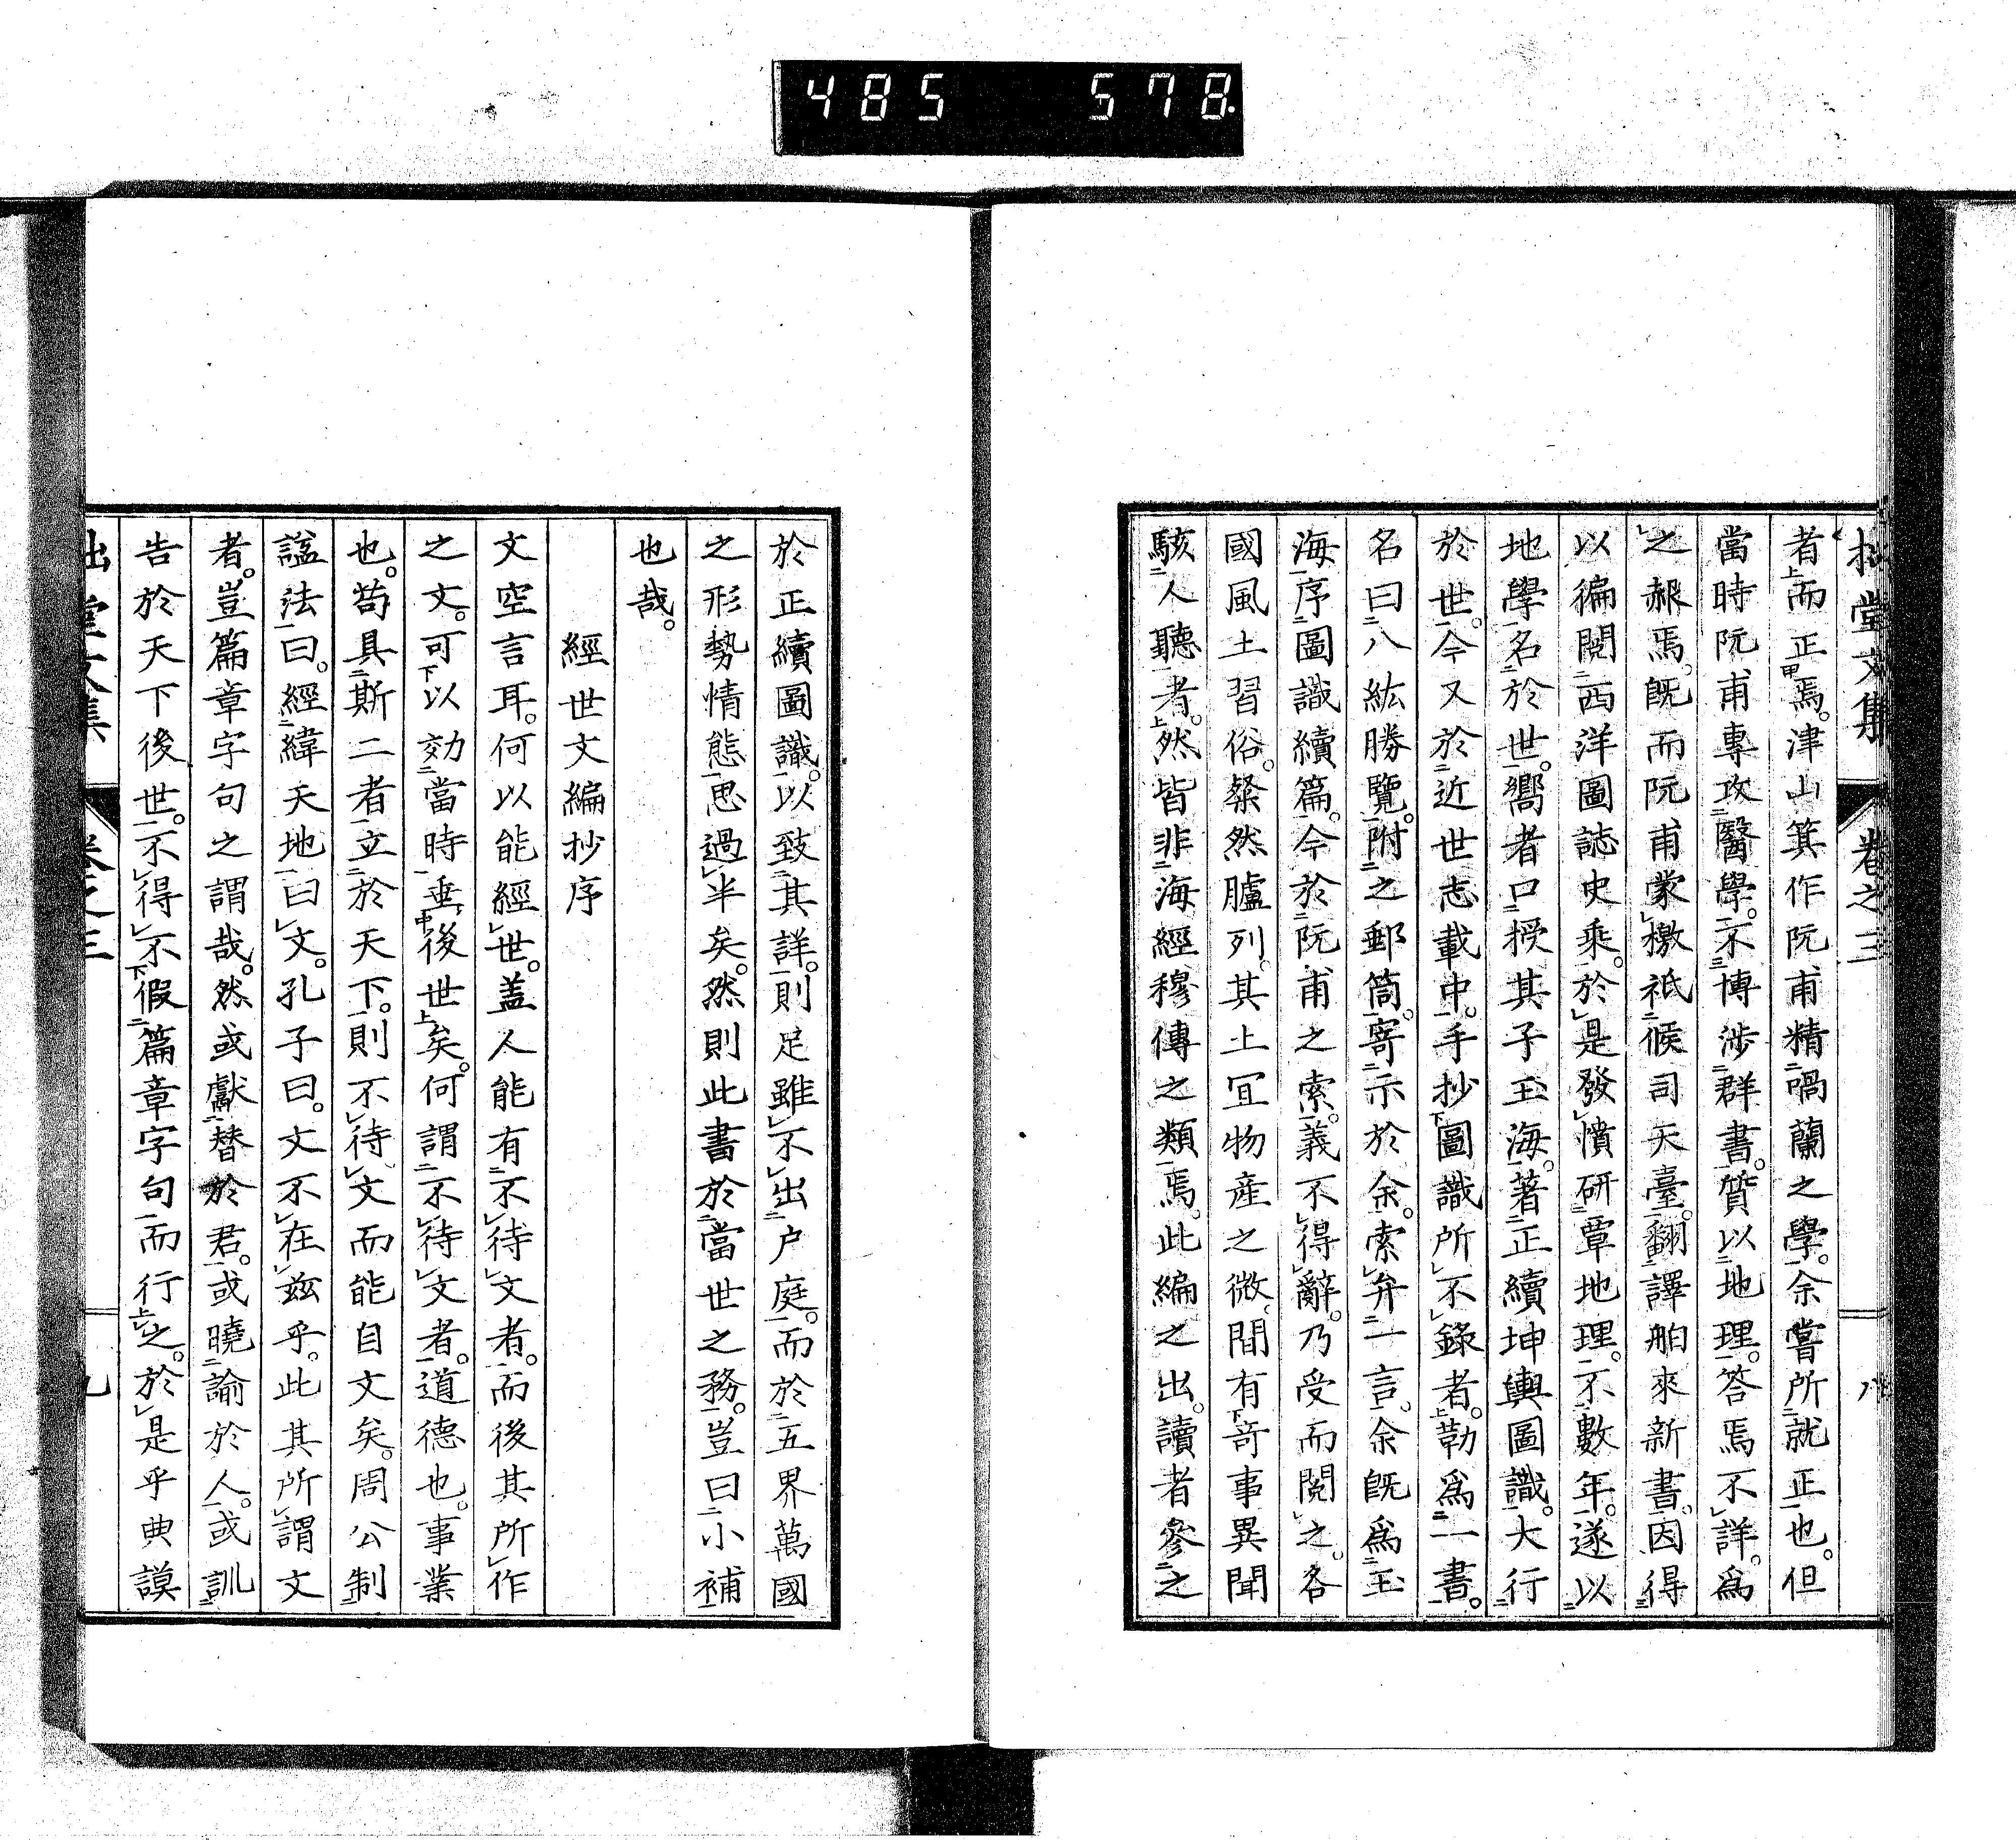 485 578
拙堂文集 卷之三 八
者而正焉。津山箕作阮甫精喎蘭之學。余嘗所就正也。但
當時阮甫專攻醫學。不博涉群書。質以地理。答焉不詳。爲
之赧焉。既而阮甫蒙檄祗候司天臺。翻譯舶來新書。因得
以徧閱西洋圖誌史乘。於是發憤研覃地理。不數年。遂以
地學名於世。嚮者口授其子玉海。著正續坤輿圖識。大行
於世。今又於近世志載中。手抄圖識所不錄者。勒爲一書。
名曰八紘勝覽。附之郵筒。寄示於余。索弁一言。余既爲玉
海序圖識續篇。今於阮甫之索。義不得辭。乃受而閱之。各
國風土習俗。粲然臚列。其土宜物産之微。間有奇事異聞
駭人聽者。然皆非海經穆傳之類焉。此編之出。讀者參之
於正續圖識。以致其詳。則足雖不出户庭。而於五界萬國
之形勢情態。思過半矣。然則此書於當世之務。豈曰小補
也哉。
經世文編抄序
文空言耳。何以能經世。盖人能有不待文者。而後其所作
之文。可以効當時垂後世矣。何謂不待文者。道德也。事業
也。苟具斯二者立於天下。則不待文而能自文矣。周公制
諡法曰。經緯天地曰文。孔子曰。文不在玆乎。此其所謂文
者。豈篇章字句之謂哉。然或獻替於君。或曉諭於人。或訓
告於天下後世。不得不假篇章字句而行之。於是乎典謨
拙堂文集 卷之三 九